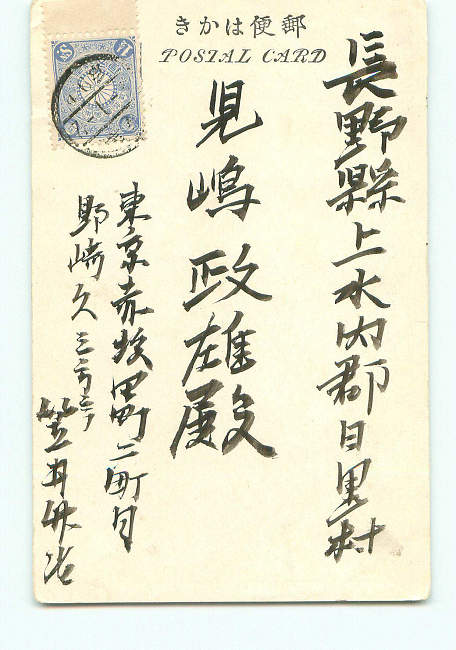 きかは便郵
POSTAL CARD
長野縣上水内郡日里村
見嶋政雄殿
東京赤坂田町二町目
野崎久三方ニテ
笠井